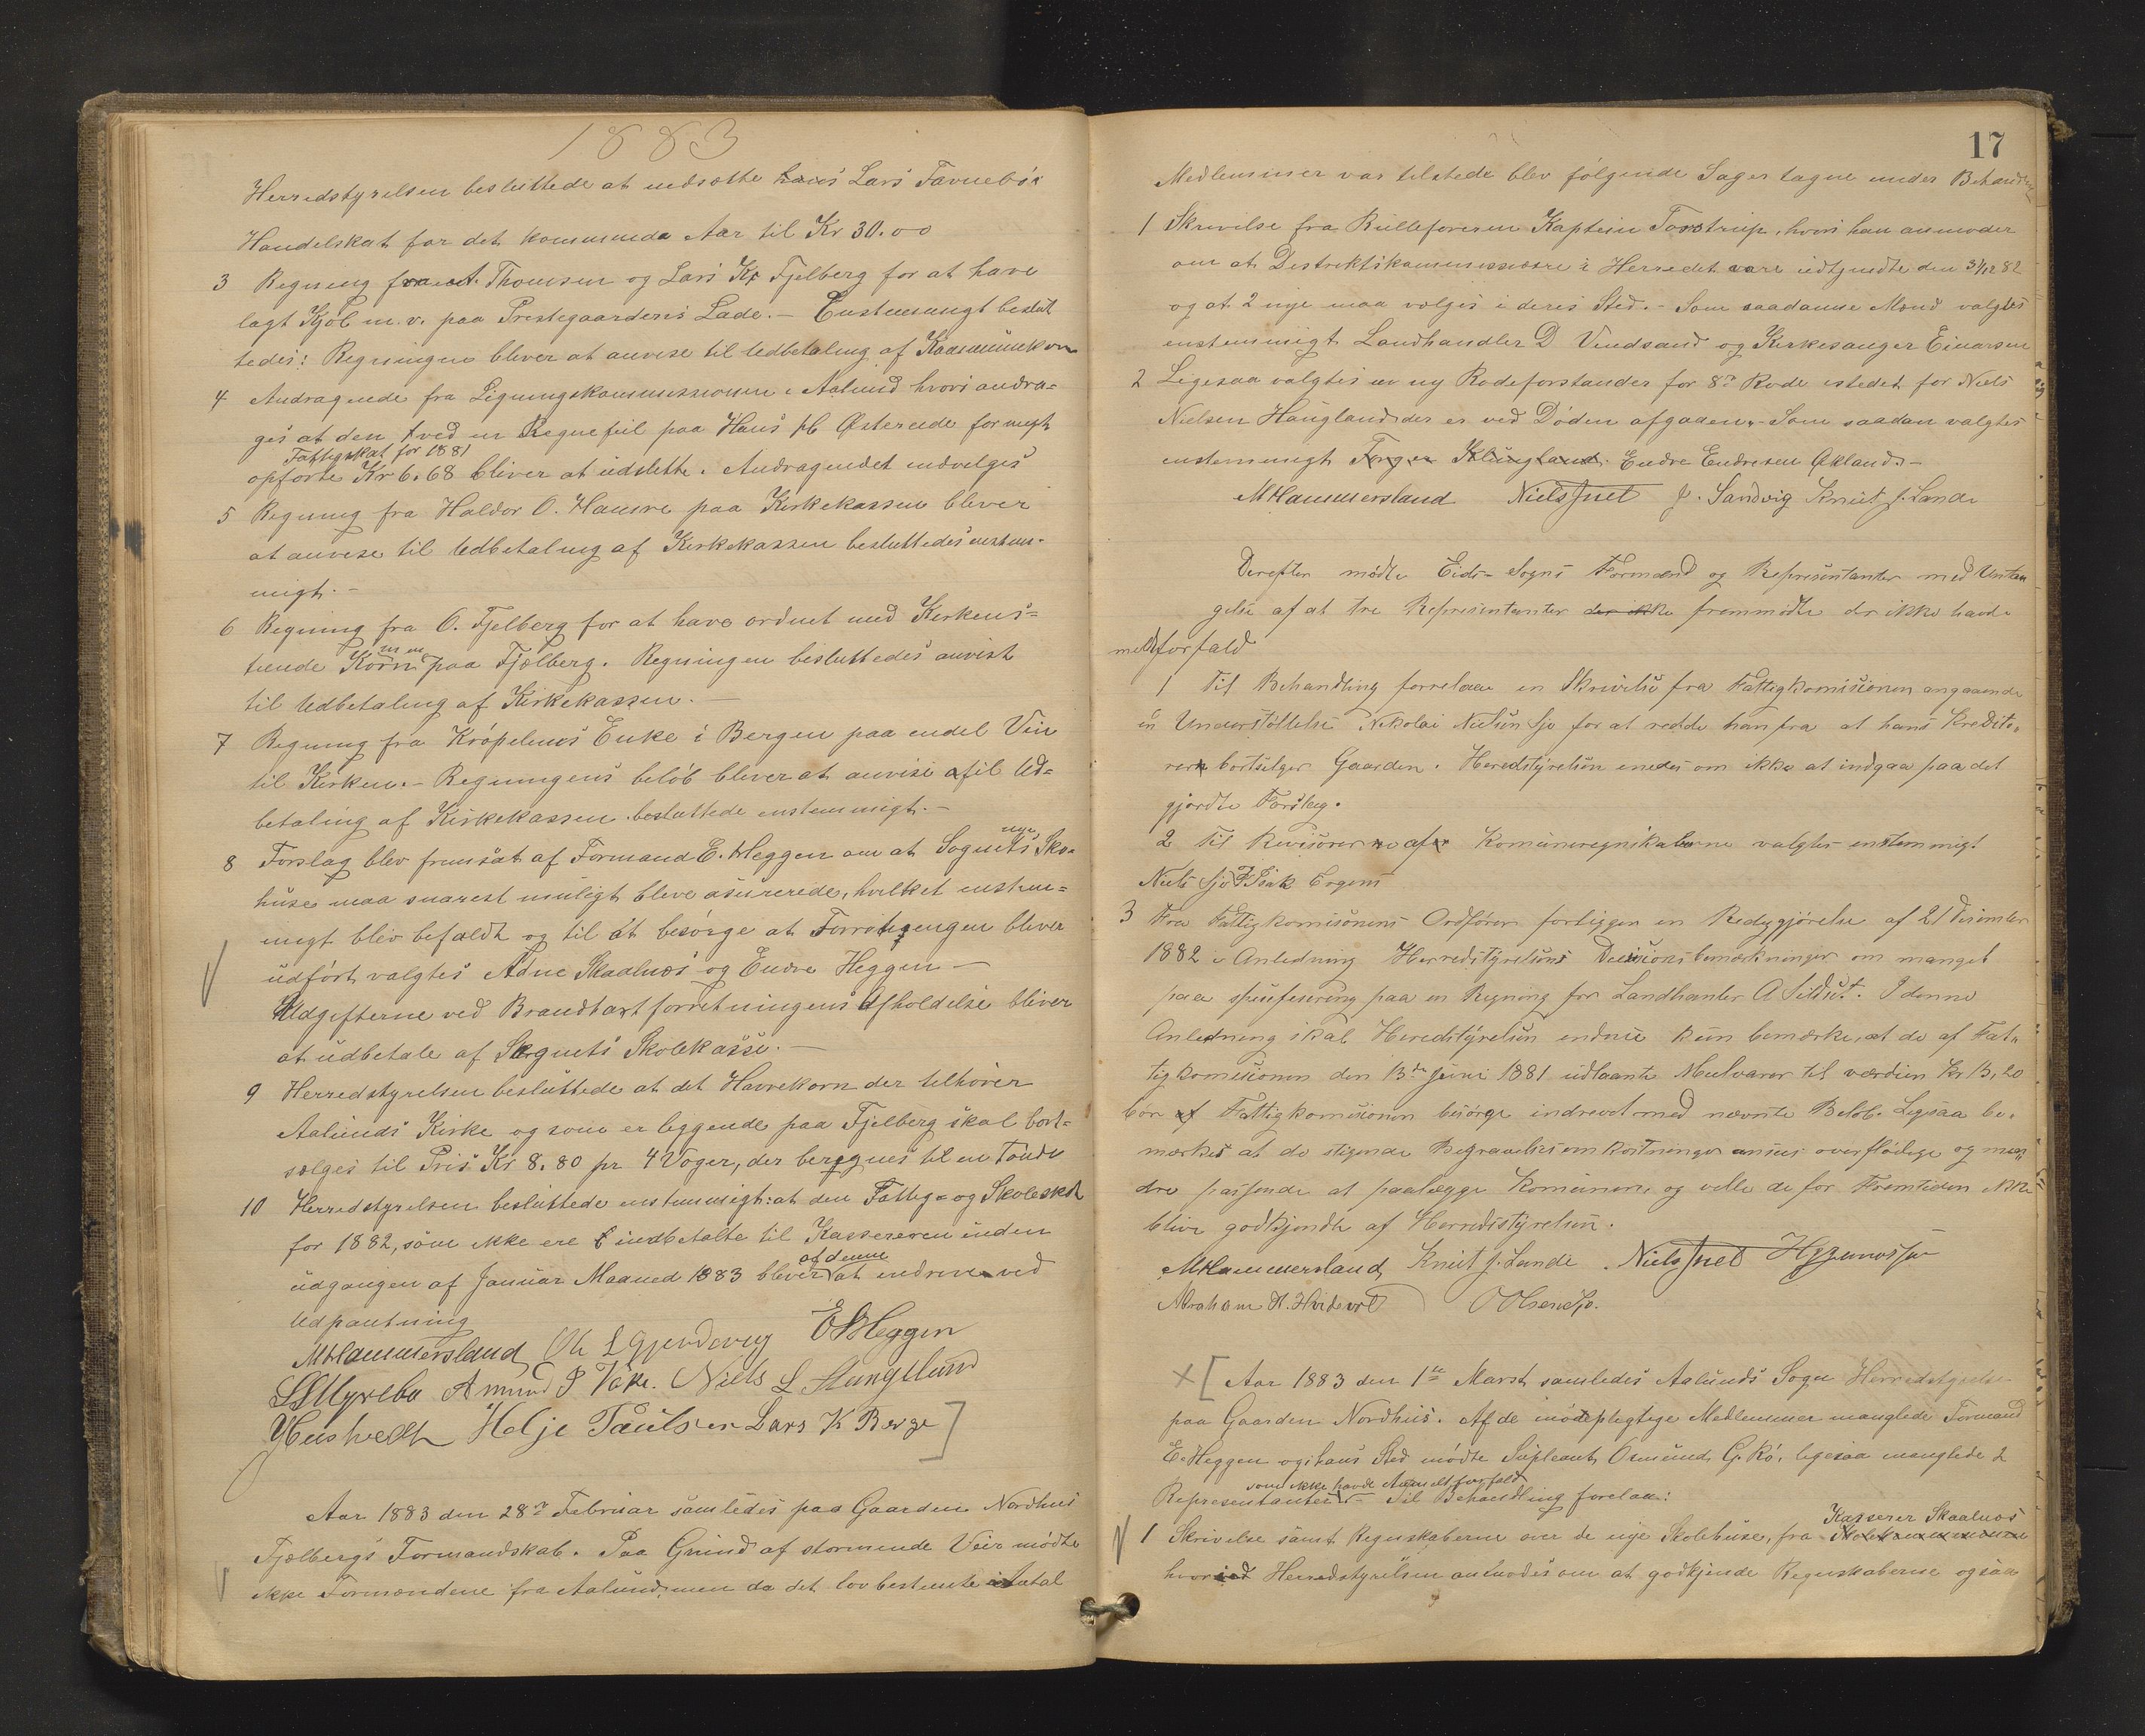 1883
Herredstyrelsen besluttede at nedsætte hans Lars Tavnebø's
Handelskat for det kommende Aar til Kr 30.00
3 Regning fra A. Thomsen og Lars Kr Fjelberg for at have
lagt Kjøl m.v. paa Prestegaardens Lade. – Enstemmigt beslut
tedes: Regningen bliver at anvise til Udbetaling af Kommunekassen
4 Andragende fra Ligningskommissionen i Aalund hvori andra=
ges at den ved en Regnefeil paa Hans Østereide formegt
Fattigskat for 1881
opførte Kr 6.68 bliver at udslette. Andragendet indvelges
5 Regning fra Haldor O. Hamre paa Kirkekassen bliver
at anvise til Udbetaling af Kirkekassen besluttedes enstem-
migt. –
6 Regning fra O. Fjelberg for at have ordnet med Kirkens=
tiende Korn m m paa Fjælberg. Regningen besluttedes anvist
til Udbetaling af Kirkekassen. –
7 Regning fra Krøpeliens Enke i Bergen paa endel Vin
til Kirken. – Regningens beløb bliver at anvise til Ud=
betaling af Kirkekassen besluttede enstemmigt. –
8 Forslag blev fremsat af Formand E. Heggen om at Sognets nye Sko=
huse maa snarest muligt bleve asurerede, hvilket enstem=
migt blev befaldt og til at besørge at Forretningen bliver
udført valgtes Adne Skaalnæs og Endre Heggen –
Udgifterne ved Brandtaxtforretningens Afholdelse bliver
at udbetale af Sognets Skolekasse. –
9 Herredstyrelsen besluttede at det Havrekorn der tilhører
Aalunds Kirke og som er liggende paa Fjelberg skal bort=
sælges til Pris Kr 8.80 pr 4 Voger, der beregnes til en Tønde
10 Herredstyrelsen besluttede enstemmigt: at den Fattig= og Skoleskat
for 1882, som ikke ere indbetalte til Kassereren inden
udgangen af Januar Maaned 1883 bliver af denne at indrive ved
Udpantning
M Hammersland Ole L Gjerdevig E B Heggen
Amund P Vake. Niels L Stangeland
Helje Paulsen Lars K Berge
Aar 1883 den 28de Februar samledes paa Gaarden Nordhus
Fjælbergs Formandskab. Paa Grund af stormende Veir mødte
ikke Formændene fra Aalund, men da det lovbestemte Antal
17
Medlemmer var tilstede blev følgende Sager tagne under Behandling
1 Skrivelse fra Rulleføreren Kaptein Tostrup, hvori han anmoder
om at Destriktskommissærere i Herredet vare udtjendte den 31/12 82
og at 2 nye maa vælges i deres Sted. – Som saadanne Mænd valgtes
enstemmigt Landhandler D Vindsand og Kirkesanger Einarsen
2 Ligesaa valgtes en ny Rodeforstander for 8de Rode istedet for Niels
Nielsen Haugland der er ved Døden afgaaen. – Som saadan valgtes
enstemmigt Torger Klungland. Endre Endresen Økland. –
M Hammersland Niels Juel J. Sandvig Knut J. Lande
Derefter mødte Eids- Sogns Formænd og Representanter med Untan
gelse af at tre Representanter der ikke fremmødte der ikke havde
meldt forfald
1 Til Behandling forrelaae en Skrivelse fra Fattigkomisionen angaaende
en Understøttelse Nikolai Nielsen Sjo for at redde han fra at hans Kredito=
rer bortselger Gaarden. Heredstyrelsen enedes om ikke at indgaa paa det
gjordte Forslag.
2 Til Revisorer af Komuneregnskaberne valgtes enstemmigt
Niels Sjo & Isak Ergens
3 Fra Fattigkomisionens Ordfører forligger en Redegjørelse af 21 Desember
1882 i Anledning Herredstyrelsens Desisionsbemerkninger om manget
paa spesifisering paa en Regning fra Landhanler A Sildest. I denne
Anledning skal Heredstyrelsen endnu kun bemærke, at de af Fat=
tigkomisionen den 13de Juni 1881 udlaante Melvarer til værdien Kr 13,20
bør af Fattigkomisionen besørge indrevet med nævnte Beløb. Ligesaa be=
mærkes at de stigende Begravelses omkostninger anses overflødige og min=
dre passende at paalægge Komunen, og ville de for Fremtiden ikke
blive godkjendte af Herredsstyrelsen.
M Hammersland, Knut J. Lande. Niels Juel
Abraham H. Hvidevold O Olsen Sjo.
Aar 1883 den 1ste Marst samledes Aalunds Sogn Herredstyrelse
paa Gaarden Nordhus. Af de mødepligtige Medlemmer manglede Formand
E. Heggen og i hans Sted mødte Supleant Osmund G. Rø, ligesaa manglede 2
som ikke havde Anmeldt forfald
Representanter – Til Behandling forelaa:
Kasserer Skaalnæs
1 Skrivelse samt Regnskaberne over de nye Skolehuse, fra Skolekommissionen
hvori Herredstyrelsen anmodes om at godkjende Regnskaberne ogsaa